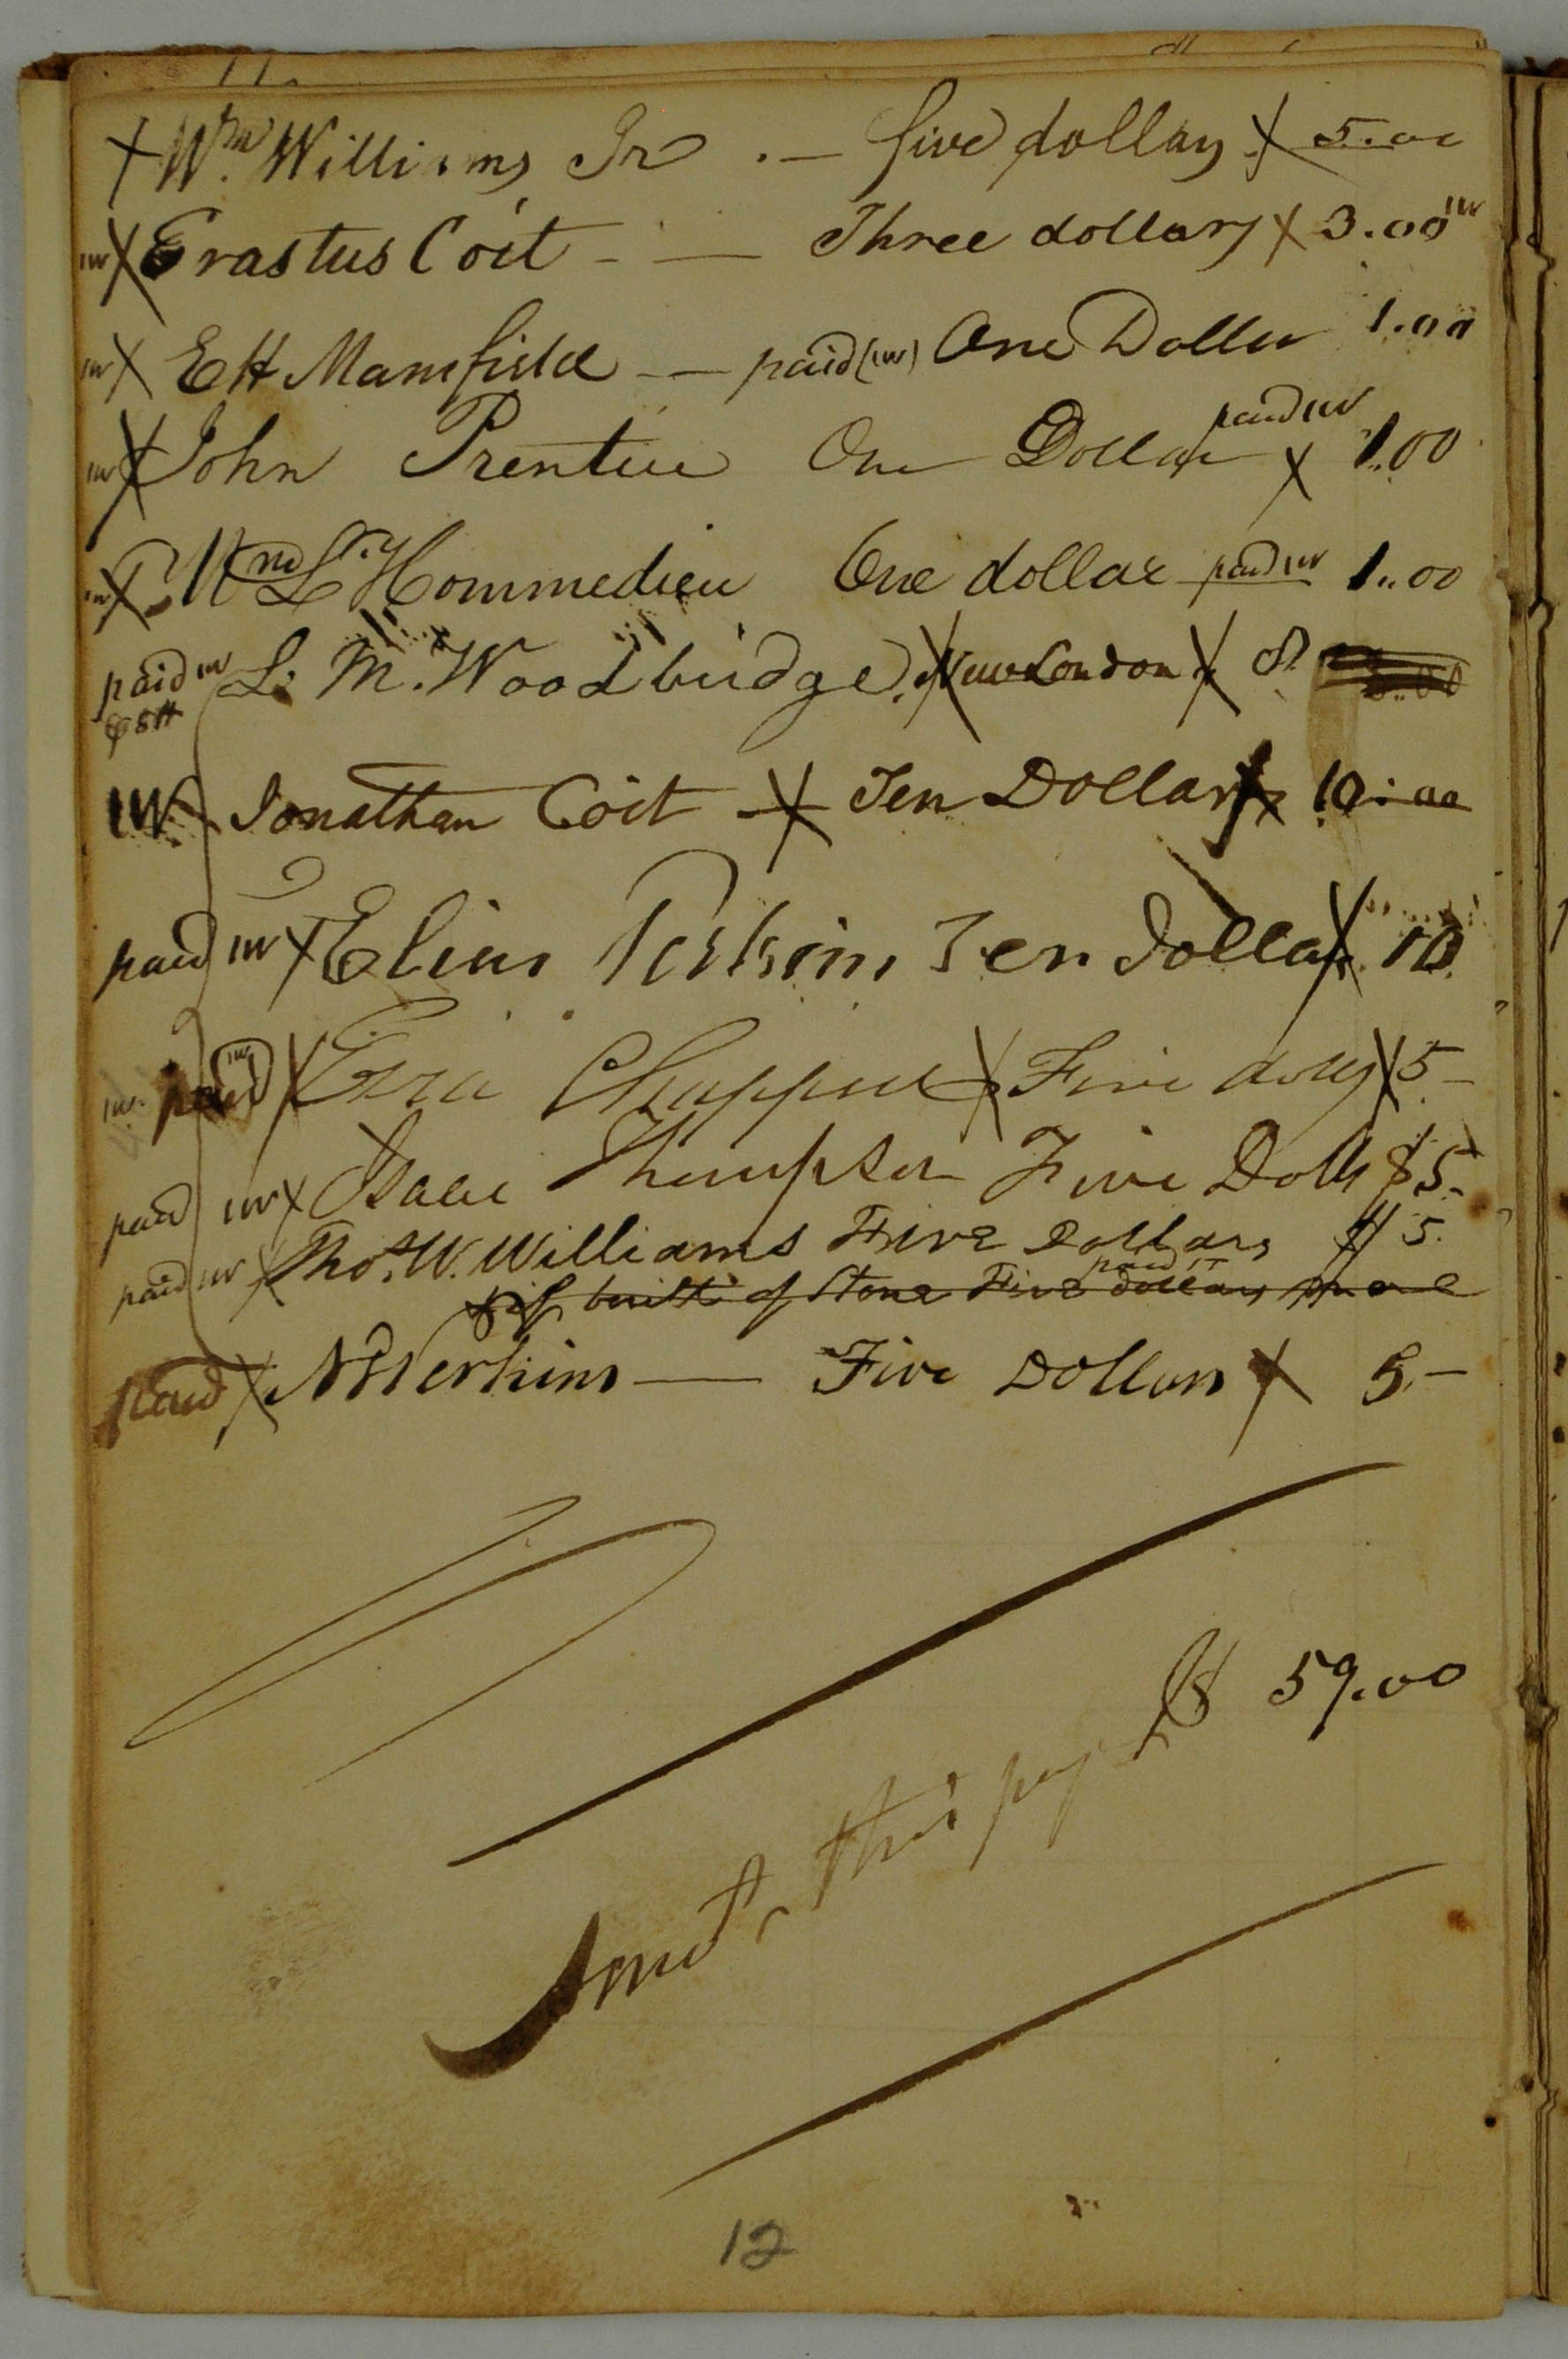 X Wm Williams Jr . — five dollars X 5.00
IW X Erastus Coit - — Three dollars X 3.00 IW
IW X E H Mansfield — paid (IW) One Dollar 1.00
IW X John Prentice One Dollar paid IW X 1.00
IW X Wm L'Hommedieu One dollar paid IW 1..00
paid IW L. M. Woodbridge. X New London X 8.
IW Jonathan Coit X Ten Dollars X 10:00
paid IW X Elias Perkins Ten dollar X 10
IW paid IW X Ezra Chappell X Five dolls X 5 -
paid IW X Isaac Thompson Five Dolls $5.-
paid IW X Thos. W. Williams Five Dollars $ 5.
& if built of Stone Five dollars more paid
paid X N S Perkins — Five Dollars X 5.-
Amot. this page $ 59.00
12